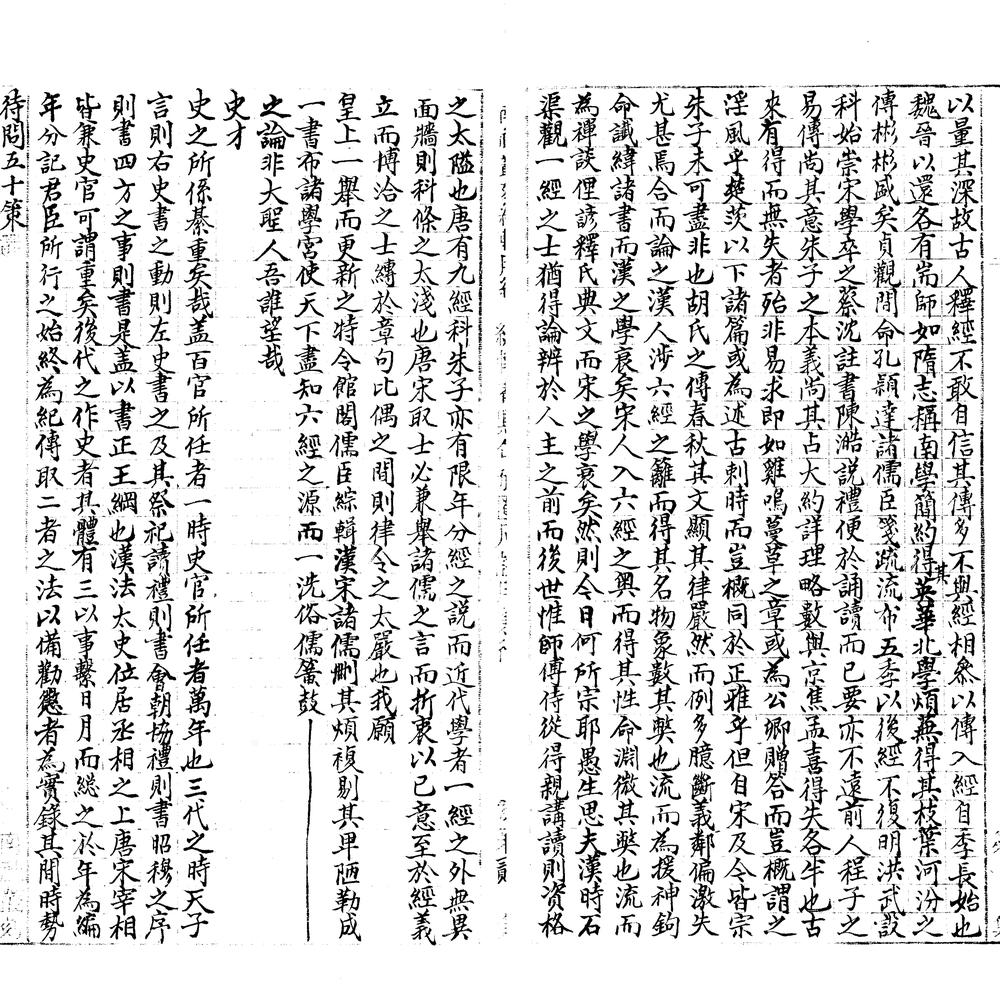 以量其深故古人釋經不敢自信其傳多不與經相參以傳入經自季長始也
魏晉以還各有耑師如隋志稱南學簡約得其英華北學煩蕪得其枝葉河汾之
傳彬彬盛矣貞觀間命孔穎達諸儒臣箋疏流布五季以後經不復明洪武設
科始崇宋學卒之蔡沈註書陳澔説禮便於誦讀而已要亦不遠前人程子之
易傳尚其意朱子之本義尚其占大約詳理略數與京焦孟喜得失各半也古
來有得而無失者殆非易求即如雞鳴蔓草之章或為公卿贈答而豈概謂之
淫風乎楚茨以下諸篇或為述古刺時而豈概同於正雅乎但自宋及今皆宗
朱子未可盡非也胡氏之傳春秋其文顯其律嚴然而例多臆斷義鄰偏激失
尤甚焉合而論之漢人涉六經之籬而得其名物象數其獘也流而為援神鉤
命讖緯諸書而漢之學衰矣宋人入六經之奧而得其性命淵微其獘也流而
為禪談俚諺釋氏典文而宋之學衰矣然則今日何所宗耶愚生思夫漢時石
渠觀一經之士猶得論辨於人主之前而後世惟師傅侍從得親講讀則資格
之太隘也唐有九經科朱子亦有限年分經之説而近代學者一經之外無異
面牆則科條之太淺也唐宋取士必兼舉諸儒之言而折衷以己意至於經義
立而博洽之士縛於章句比偶之間則律令之太嚴也我願
皇上一舉而更新之特令館閣儒臣綜輯漢宋諸儒刪其煩複剔其卑陋勒成
一書布諸學宮使天下盡知六經之源而一洗俗儒籥鼓
之論非大聖人吾誰望哉
史才
史之所係綦重矣哉盖百官所任者一時史官所任者萬年也三代之時天子
言則右史書之動則左史書之及其祭祀讀禮則書會朝協禮則書昭穆之序
則書四方之事則書是盖以書正王綱也漢法太史位居丞相之上唐宋宰相
皆兼史官可謂重矣後代之作史者其體有三以事繫日月而總之於年為編
年分記君臣所行之始終為紀傳取二者之法以備勸懲者為實錄其間時勢
待問五十策